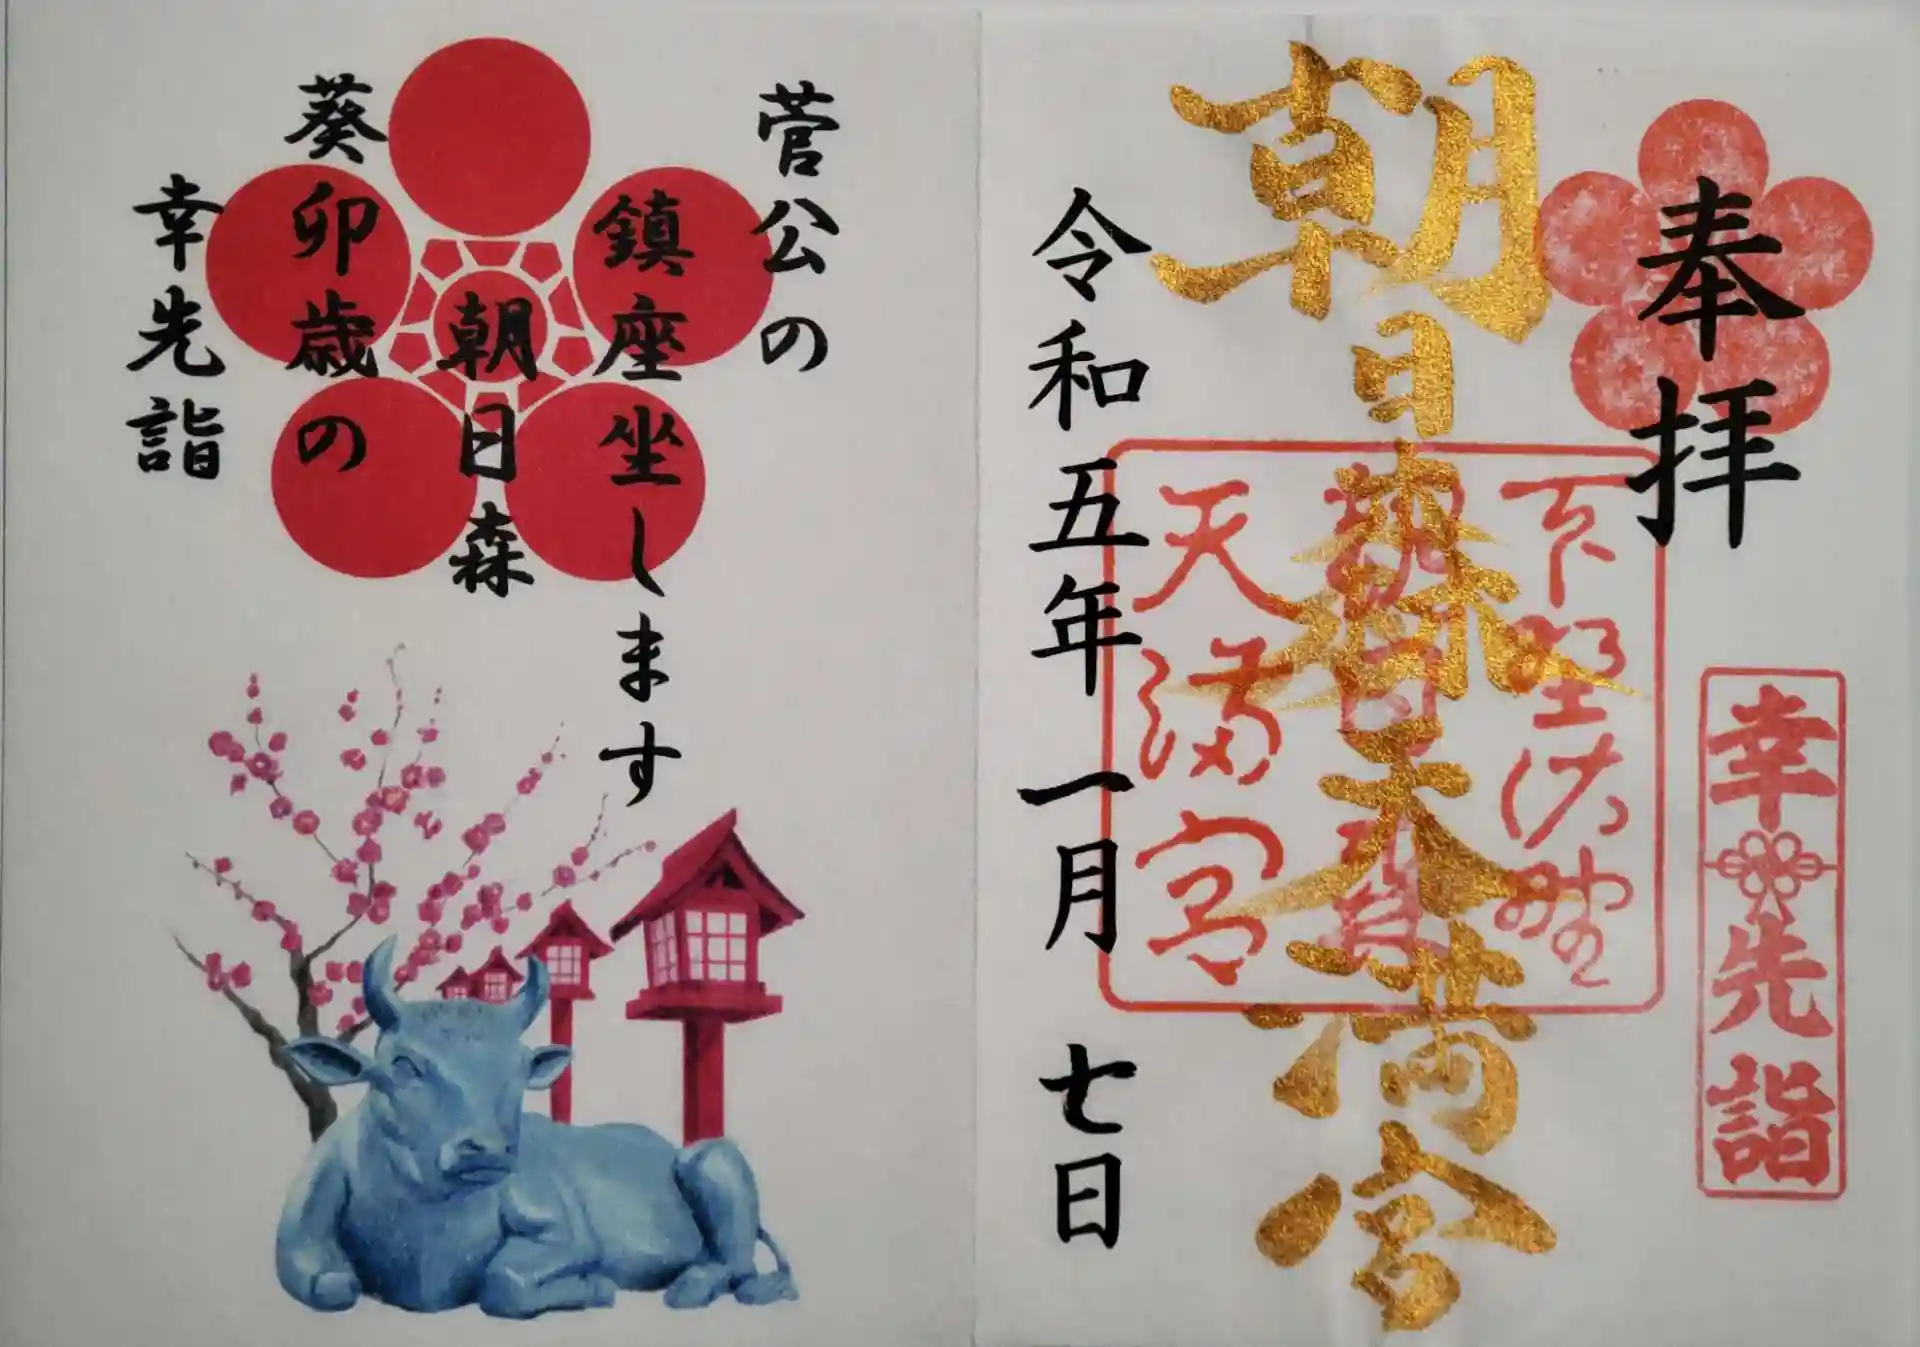 奉拝
幸先詣
朝日森天満宮
下野佐野
朝日森
天満宮
令和五年一月七日
菅公の
鎮座坐します
朝日森
葵卯歳の
幸先詣